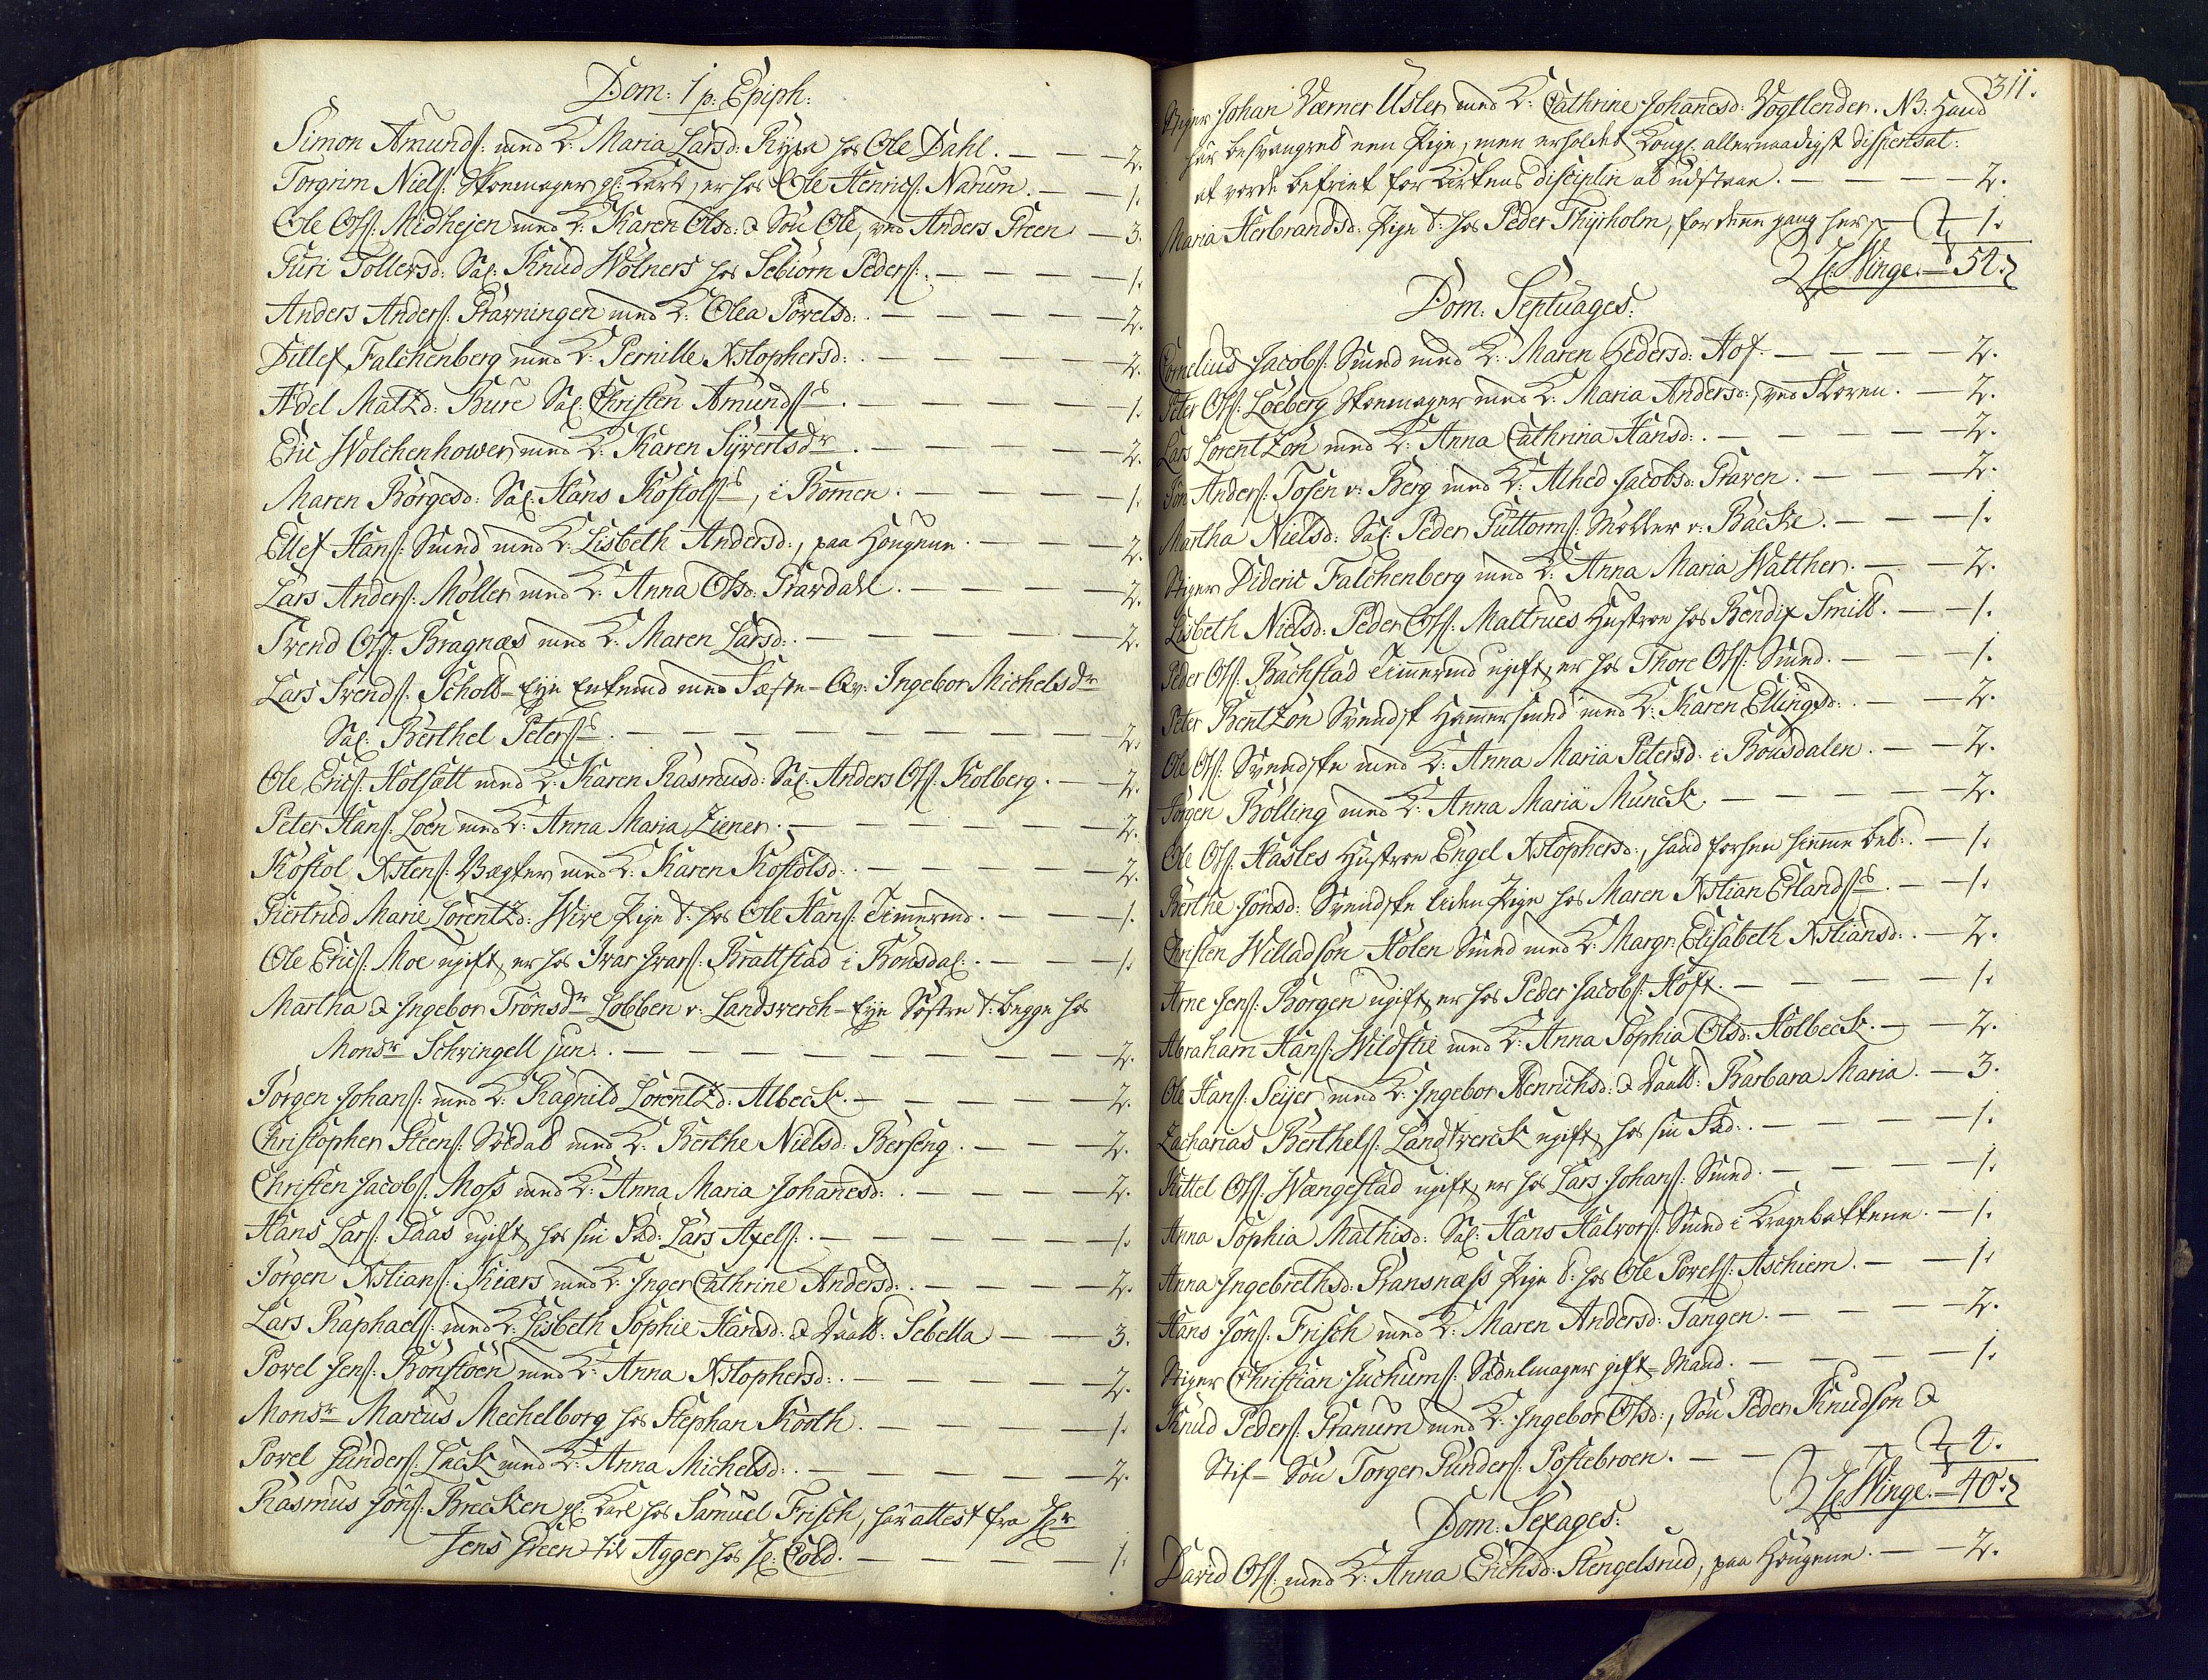 Dom: 1 p: Epiph:
Simon Amunds: med K: Maria Larsd: Rypa hos Ole Dahl. — — 2.
Torgrim Niels: Skoemager gl: Karl, er hos Ole Henrics: Narum. — — 1.
Ole Ols: Midhejen med K: Karen Olsd: & Søn Ole, ved Anders Green — 3.
Guri Tollersd: Sal: Knud Wølners hos Sebiørn Peders: — — — 1.
Anders Anders: Grarningen med K: Olea Povelsd: — — — 2.
Ditlef Falchenberg med K: Pernille Xstophersd: — — — 2.
Adel Matzd: Bure Sal: Christen Amunds: — — — 1.
Eric Wolchenhower med K: Karen Syvertsdr — — — 2.
Maren Børgesd: Sal: Hans Kostols:, i Bommen. — — — 1.
Ellef Hans: Smed med K: Lisbeth Andersd:, paa Hougene. — — 2.
Lars Anders: Møller med K: Anna Olsd: Gravdahl. — — — 2.
Svend Ols: Bragnæs med K: Maren Larsd: — — — 2.
Lars Svends: Schold-Eye Enkemd med Fæste-Qv: Ingebor Michelsdr
Sal: Berthel Peters: — — — 2.
Ole Erics: Holsætt med K: Karen Rasmusd: Sal: Anders Ols: Kolberg. — 2.
Peter Hans: Loen med K: Anna Maria Ziener. — — — 2.
Kostol Xstens: Vægter med K: Karen Kostolsd: — — — 2.
Giertrud Marie Lorentzd: Wire Pige t: hos Ole Hans: Timermd. — — 1.
Ole Erics: Moe ugift, er hos Ivar Ivars: Brattstad i Bonsdal: — — 1.
Martha & Ingebor Trønsdr Lobben v: Landsverch-Eye Søstre t: begge hos
Monsr Schwingell jun: — — — 2.
Jørgen Johans: med K: Ragnild Lorentzd: Albeck. — — — 2.
Christopher Steens: Soldat med K: Berthe Nielsd: Berseng. — — 2.
Christen Jacobs: Moss med K: Anna Maria Johanesd: — — 2.
Hans Lars: Paas ugift, hos sin Fad: Lars Axels: — — — 1.
Jørgen Xstians: Kiærs med K: Inger Cathrine Andersd: — — 2.
Lars Raphaels: med K: Lisbeth Sophie Hansd: & Daatt: Sebella — — 3.
Povel Jens: Bonstoen med K: Anna Xstophersd: — — — 2.
Monsr Marcus Mechelborg hos Stephan Korth. — — 1.
Povel Gunders: Lack med K: Anna Michelsd: — — — 2.
Rasmus Jons: Brecken gl: Karl hos Samuel Frisch, har attest fra Hr
Jens Green til Agger hos H: Cold. — — — 1.
311.
Stiger Johan Værner Usler med K: Cathrine Johanesd: Vogtlender. NB: Hand
har besvangred een Pige, men erholdet Kongl: allernaadigst dispensat:
at vorde befriet for Kirkens disciplin at udstaae. — — — 2.
Maria Herbrandsd: Pige t: hos Peder Thyrholm, for denne gang her — 1.
H: Winge. — 54.
Dom: Septuages:
Cornelius Jacobs: Smed med K: Maren Pedersd: Hof — — — 2.
Peter Ols: Loeberg Skoemager med K: Maria Andersd:, ved Skoven. — 2.
Lars Lorentzon med K: Anna Cathrina Hansd: — — — 2.
Jon Anders: Tosen v: Berg med K: Alhed Jacobsd: Graven. — — 2.
Martha Nielsd: Sal: Peder Guttorms: Møller v: Backe. — — 1.
Stiger Dideric Falchenberg med K: Anna Maria Walther. — — 2.
Lisbeth Nielsd: Peder Ols: Maltrues Hustroe hos Bendix Smitt. — 1.
Peder Ols: Bachstad Timermd ugift, er hos Thore Ols: Smed. — — 1.
Peter Bentzon Svendsk Hammersmed med K: Karen Ellingsd: — — 2.
Ole Ols: Svendske med K: Anna Maria Petersd: i Bonsdalen. — — 2.
Jørgen Bølling med K: Anna Maria Munck. — — — 2.
Ole Ols: Hasles Hustroe Engel Xstophersd:, hand forhen hiemme bet: — 1.
Berthe Jonsd: Svendske liden Pige hos Maren Xstian Erlands: — 1.
Christen Willadson Holen Smed med K: Margr: Elisabeth Xstiansd: — 2.
Arne Jens: Borgen ugift, er hos Peder Jacobs: Hoft. — — — 1.
Abraham Hans: Wildstie med K: Anna Sophia Olsd: Holbeck. — — 2.
Ole Hans: Seijer med K: Ingebor Henrichsd: & Daatt: Barbara Maria. — 3.
Zacharias Berthels: Landtverck ugift, hos sin Fad: — — — 1.
Kittel Ols: Wængestad ugift, er hos Lars Johans: Smed. — — 1.
Anna Sophia Mathisd: Sal: Hans Halvors: Smed i Kragebakkene. — 1.
Anna Ingebrethsd: Pransnæss Pige t: hos Ole Povels: Aschiem. — 1.
Hans Jons: Frisch med K: Maren Andersd: Tangen. — — — 2.
Stiger Christian Juchums: Sadelmager gift-Mand. — — — 1.
Knud Peders: Granum med K: Ingebor Olsd:, Søn Peder Knudson &
Stif-Søn Torger Gunders: Postebroen. — — — 4.
H: Winge. — 40.
Dom: Sexages:
David Ols: med K: Anna Erichsd: Stengelsrud, paa Hougene. — — 2.